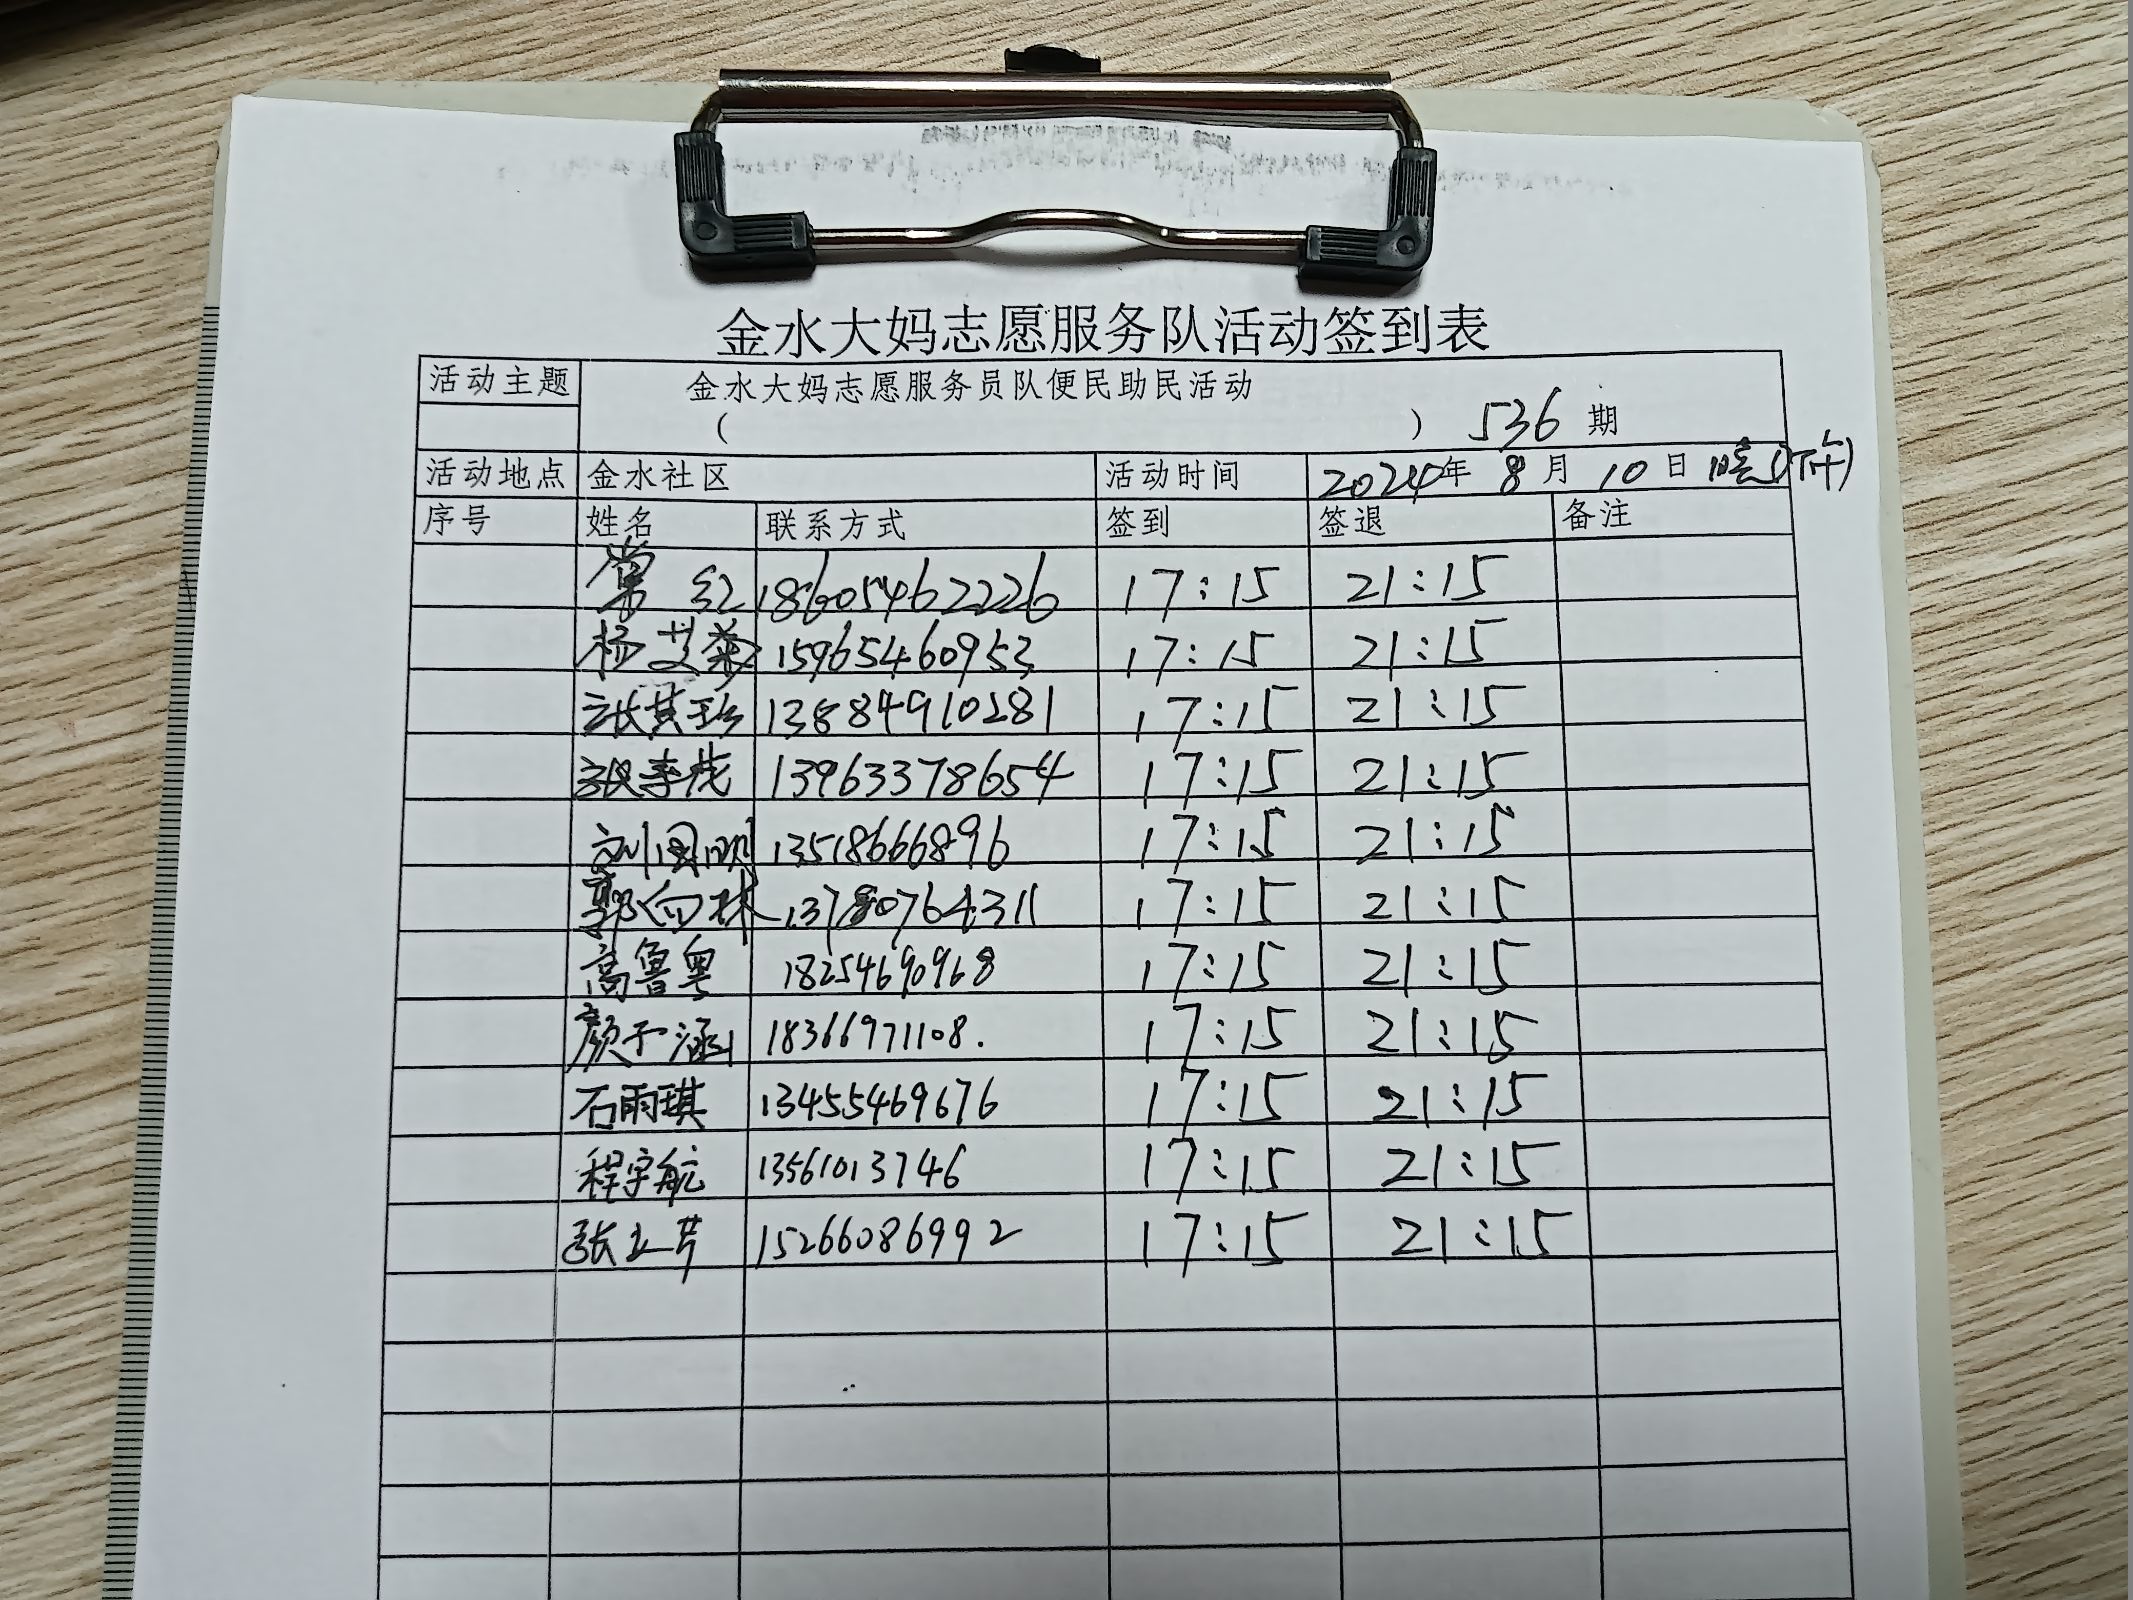 金水大妈志愿服务队活动签到表
活动主题 金水大妈志愿服务员队便民助民活动
( ) 536 期
活动地点 金水社区 活动时间 2024年 8月 10日 晴(下午)
序号 姓名 联系方式 签到 签退 备注
常红 18605462226 17:15 21:15
杨艾菊 15965460953 17:15 21:15
张其珍 13884910281 17:15 21:15
张李茂 13963378654 17:15 21:15
刘国明 13518666896 17:15 21:15
郭向林 13780764311 17:15 21:15
高鲁粤 18254690968 17:15 21:15
颜子涵 18366971108. 17:15 21:15
石雨琪 13455469676 17:15 21:15
程宇航 13561013746 17:15 21:15
张立芹 15266086992 17:15 21:15